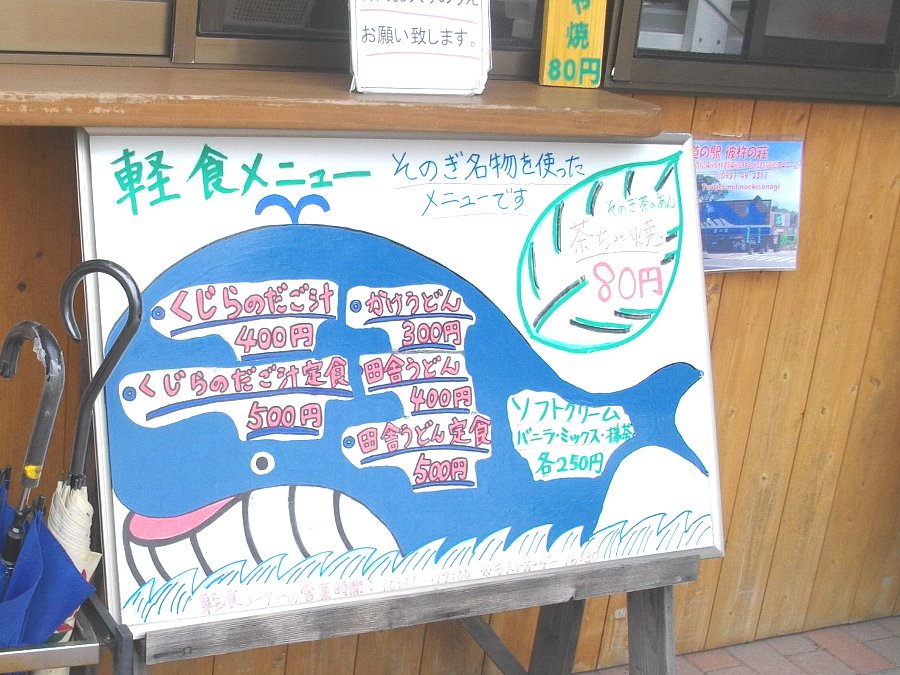 お願い致します。
焼
80円
軽食メニュー
そのぎ名物を使った
メニューです
そのぎ茶のあん
茶ちゃ焼
80円
くじらのだご汁
400円
くじらのだご汁定食
500円
かけうどん
300円
田舎うどん
400円
田舎うどん定食
500円
ソフトクリーム
バニラ・ミックス・抹茶
各250円
道の駅 彼杵の荘
軽食コーナーの営業時間: